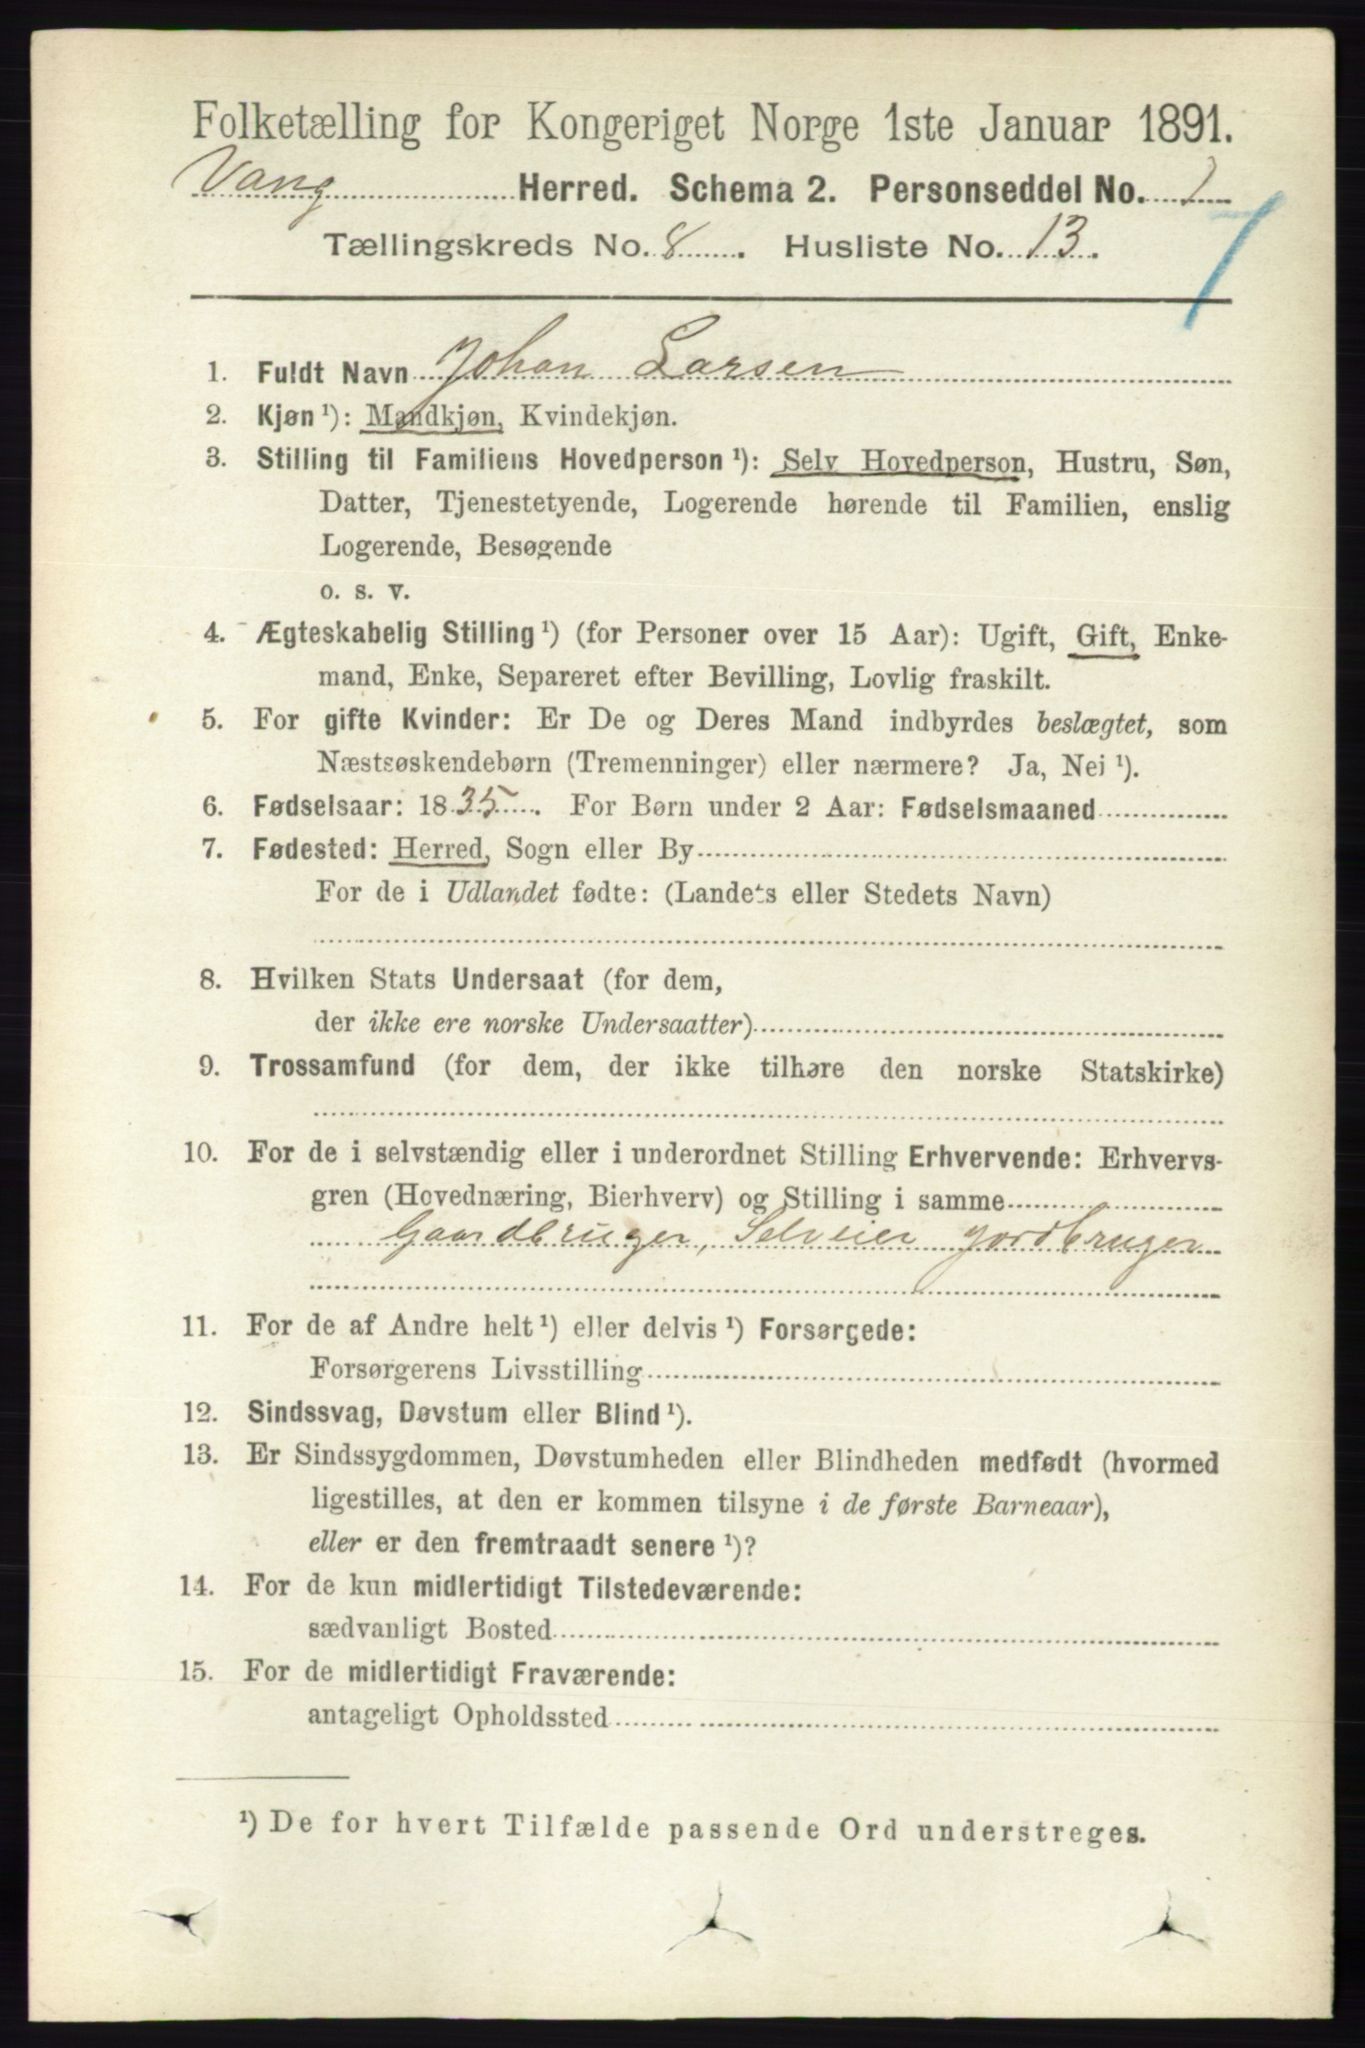 Folketælling for Kongeriget Norge 1ste Januar 1891.
Vang Herred. Schema 2. Personseddel No. 1
Tællingskreds No. 8. Husliste No. 13.
7
1. Fuldt Navn Johan Larsen
2. Kjøn ¹): Mandkjøn, Kvindekjøn.
3. Stilling til Familiens Hovedperson ¹): Selv Hovedperson, Hustru, Søn,
Datter, Tjenestetyende, Logerende hørende til Familien, enslig
Logerende, Besøgende
o. s. v.
4. Ægteskabelig Stilling ¹) (for Personer over 15 Aar): Ugift, Gift, Enke-
mand, Enke, Separeret efter Bevilling, Lovlig fraskilt.
5. For gifte Kvinder: Er De og Deres Mand indbyrdes beslægtet, som
Næstsøskendebørn (Tremenninger) eller nærmere? Ja, Nei ¹).
6. Fødselsaar: 1835. For Børn under 2 Aar: Fødselsmaaned
7. Fødested: Herred, Sogn eller By
For de i Udlandet fødte: (Landets eller Stedets Navn)
8. Hvilken Stats Undersaat (for dem,
der ikke ere norske Undersaatter)
9. Trossamfund (for dem, der ikke tilhøre den norske Statskirke)
10. For de i selvstændig eller i underordnet Stilling Erhvervende: Erhvervs-
gren (Hovednæring, Bierhverv) og Stilling i samme
Gaardbruger, Selveier Jordbruger
11. For de af Andre helt ¹) eller delvis ¹) Forsørgede:
Forsørgerens Livsstilling
12. Sindssvag, Døvstum eller Blind ¹).
13. Er Sindssygdommen, Døvstumheden eller Blindheden medfødt (hvormed
ligestilles, at den er kommen tilsyne i de første Barneaar),
eller er den fremtraadt senere ¹)?
14. For de kun midlertidigt Tilstedeværende:
sædvanligt Bosted
15. For de midlertidigt Fraværende:
antageligt Opholdssted
¹) De for hvert Tilfælde passende Ord understreges.